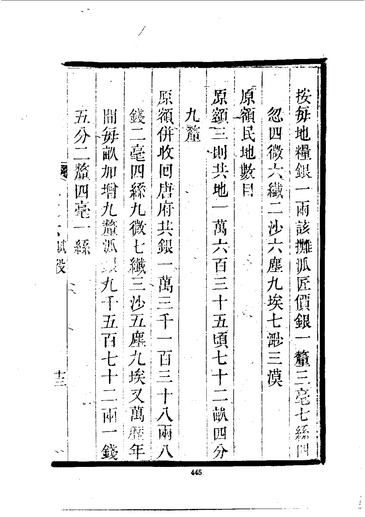 按每地糧銀一兩該攤派匠價銀一釐三毫七絲四
忽四微六纖二沙六塵九埃七渺三漠
原額民地數目
原額三則共地一萬六百三十五頃七十二畝四分
九釐
原額併收回唐府共銀一萬三千一百三十八兩八
錢二毫四絲九微七纖三沙五塵九埃又萬曆年
間每畝加增九釐派銀九千五百七十二兩一錢
五分二釐四毫一絲
賦役
十三
445